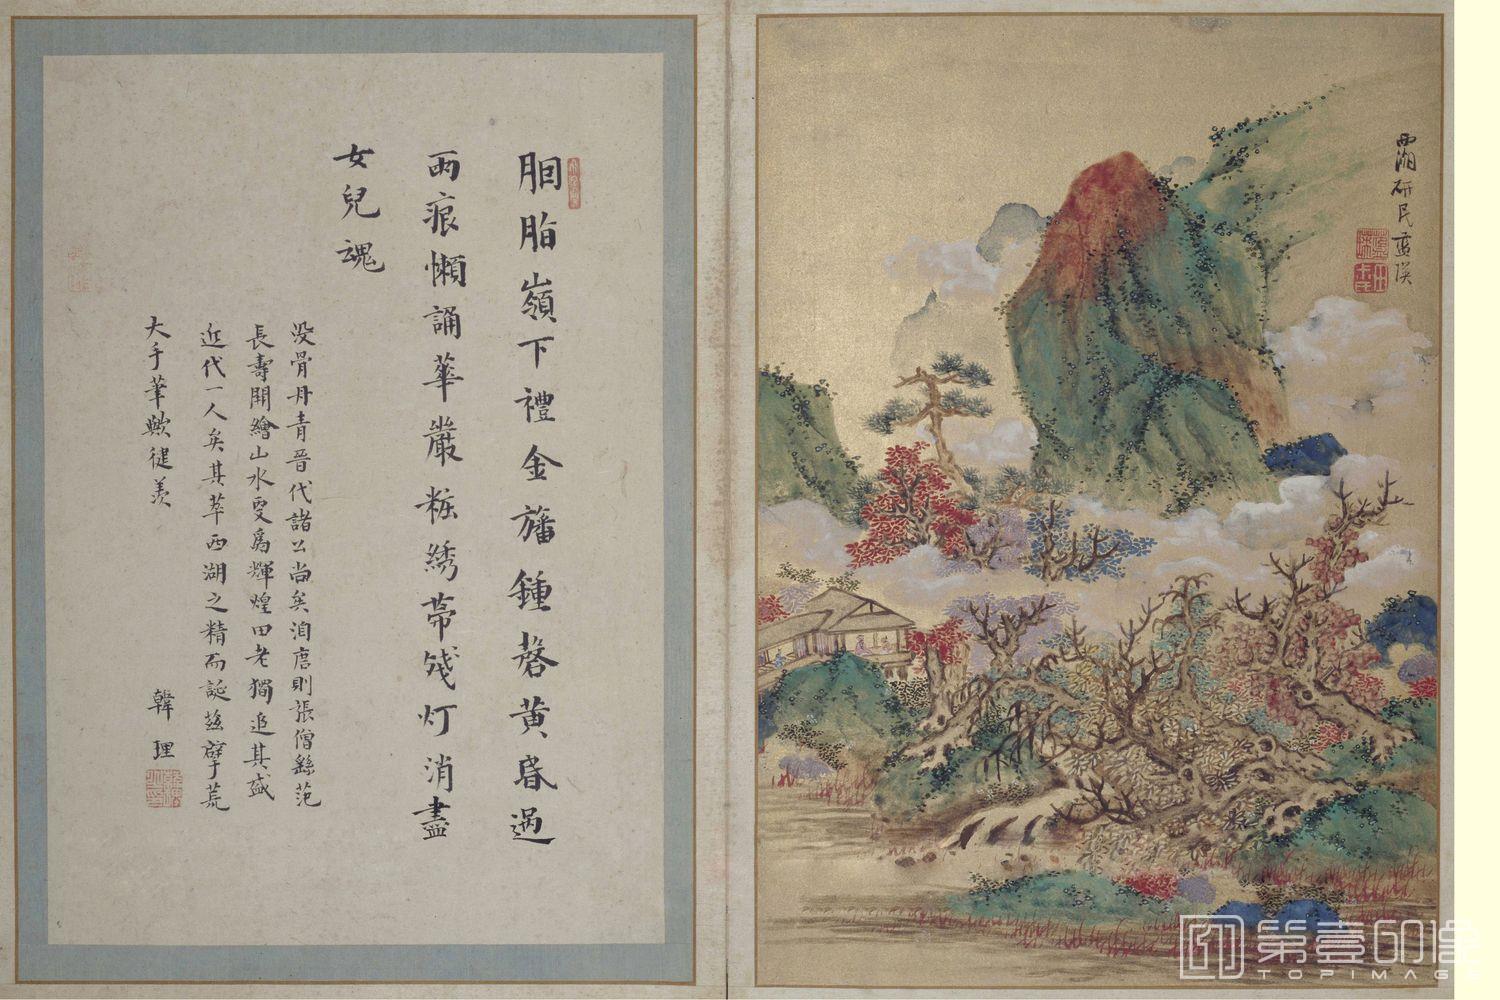 西湖研民藍瑛
胭脂嶺下禮金旛鍾磬黃昏過
雨痕懶誦華嚴粧綉帶殘灯消盡
女兒魂
没骨丹青晉代諸公尚矣洎唐則張僧繇范
長壽開繪山水更爲輝煌田老獨追其盛
近代一人矣其萃西湖之精而誕玆擘荒
大手筆歟健羨
韓理
第壹印像
TOPIMAGE